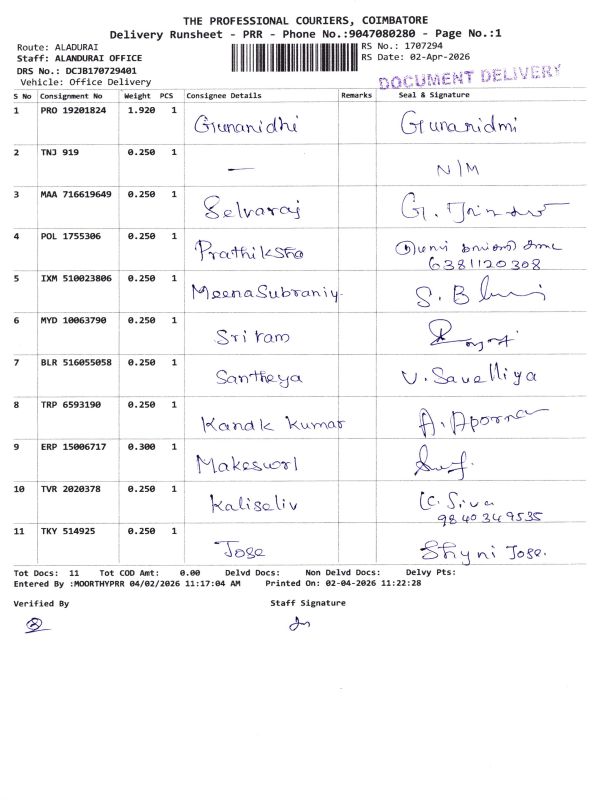 THE PROFESSIONAL COURIERS, COIMBATORE
Delivery Runsheet - PRR - Phone No.:9047080280 - Page No.:1
Route: ALADURAI RS No.: 1707294
Staff: ALANDURAI OFFICE RS Date: 02-Apr-2026
DRS No.: DCJB170729401
Vehicle: Office Delivery
DOCUMENT DELIVERY
S No Consignment No Weight PCS Consignee Details Remarks Seal & Signature
1 PRO 19201824 1.920 1 Gunanidhi Gunanidmi
2 TNJ 919 0.250 1 — N/M
3 MAA 716619649 0.250 1 Selvaraj G.
4 POL 1755306 0.250 1 Prathiksha
6381120308
5 IXM 510023806 0.250 1 MeenaSubraniy. S. B
6 MYD 10063790 0.250 1 Sriram
7 BLR 516055058 0.250 1 Santheya V. Savelliya
8 TRP 6593190 0.250 1 Kandk Kumar A. Aporna
9 ERP 15006717 0.300 1 Makeswrl
10 TVR 2020378 0.250 1 Kaliseliv C. Siva
9840349535
11 TKY 514925 0.250 1 Jose Shyni Jose.
Tot Docs: 11 Tot COD Amt: 0.00 Delvd Docs: Non Delvd Docs: Delvy Pts:
Entered By :MOORTHYPRR 04/02/2026 11:17:04 AM Printed On: 02-04-2026 11:22:28
Verified By Staff Signature